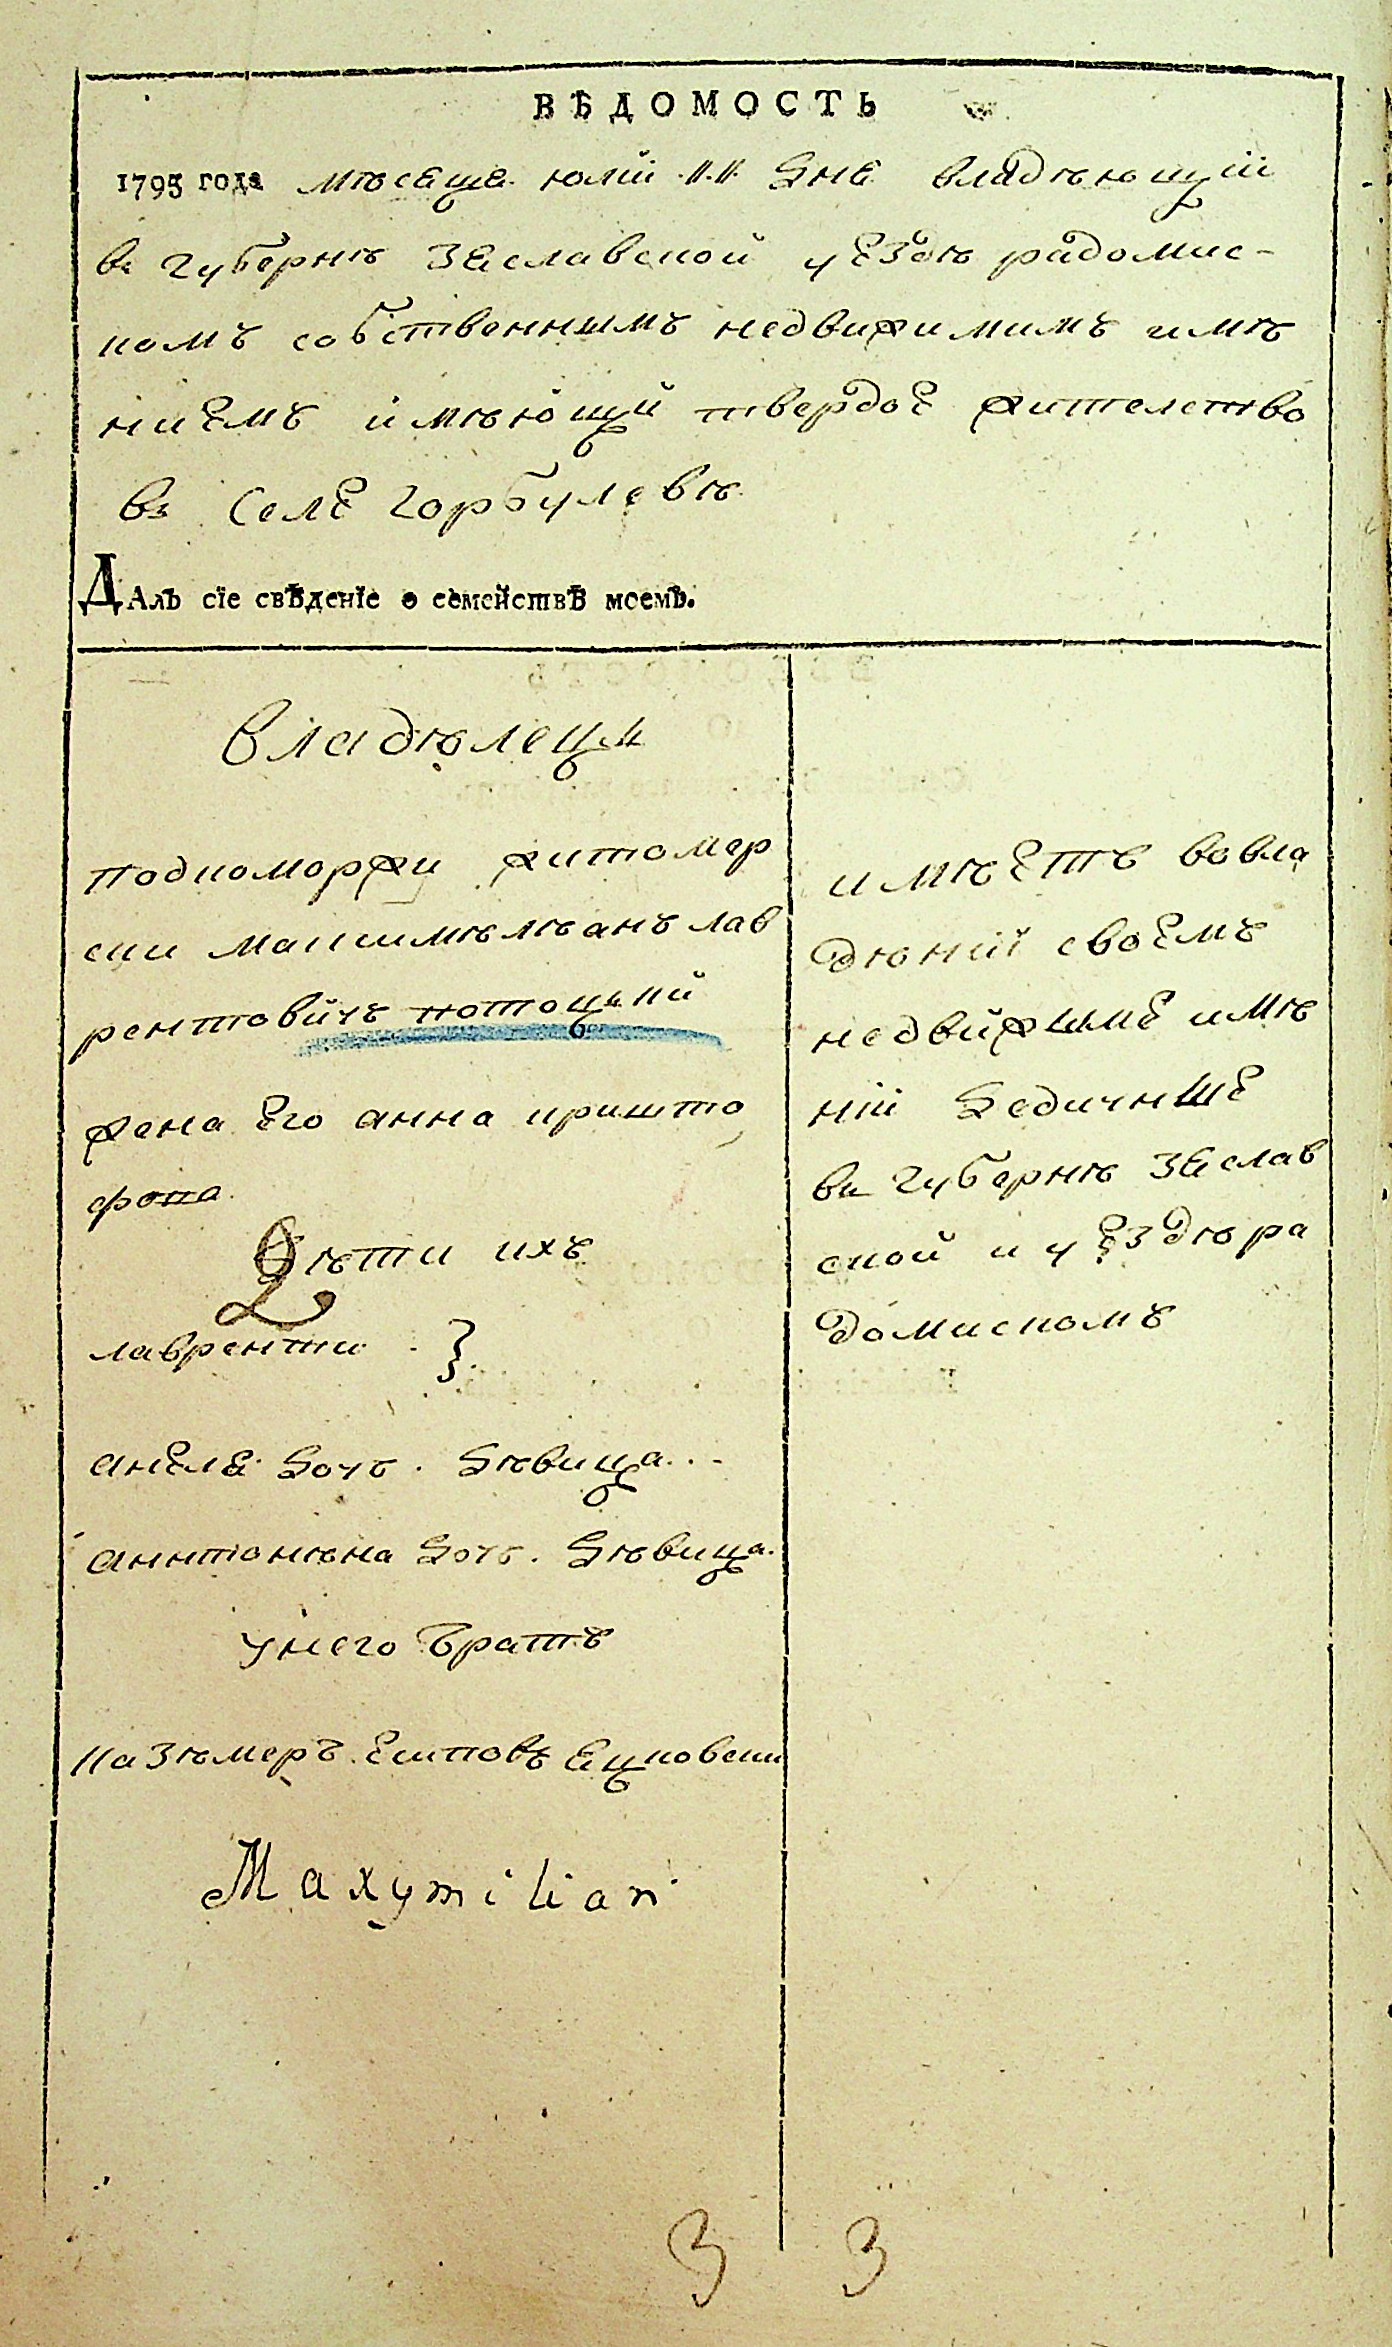 ВѢДОМОСТЬ
1795 года мѣсяца июлій 11 дня владѣющій
въ губернѣ Заславской уездѣ радомис-
комъ собственнымъ недвижимимъ имѣ
ниемъ имѣющій твердое жителство
въ Селе горбулевѣ
Далъ сїе свѣденїе о семействѣ моемъ.
владѣлецъ
подкоморжи житомер
ски максимѣлѣанъ лав
рентовичъ потоцкий
жена Его анна кришто
фова
Дѣти ихъ
лаврентии
анеля дочь. дѣвица
аннтонѣна дочь. дѣвица.
у него братъ
казѣмеръ есиповъ яцковски
Maxymilian
имѣетъ вовла
дѣніи своемъ
недвижиме имѣ
ніи дедичные
въ губернѣ Заслав
ской и уездѣ ра
домискомъ
3 3